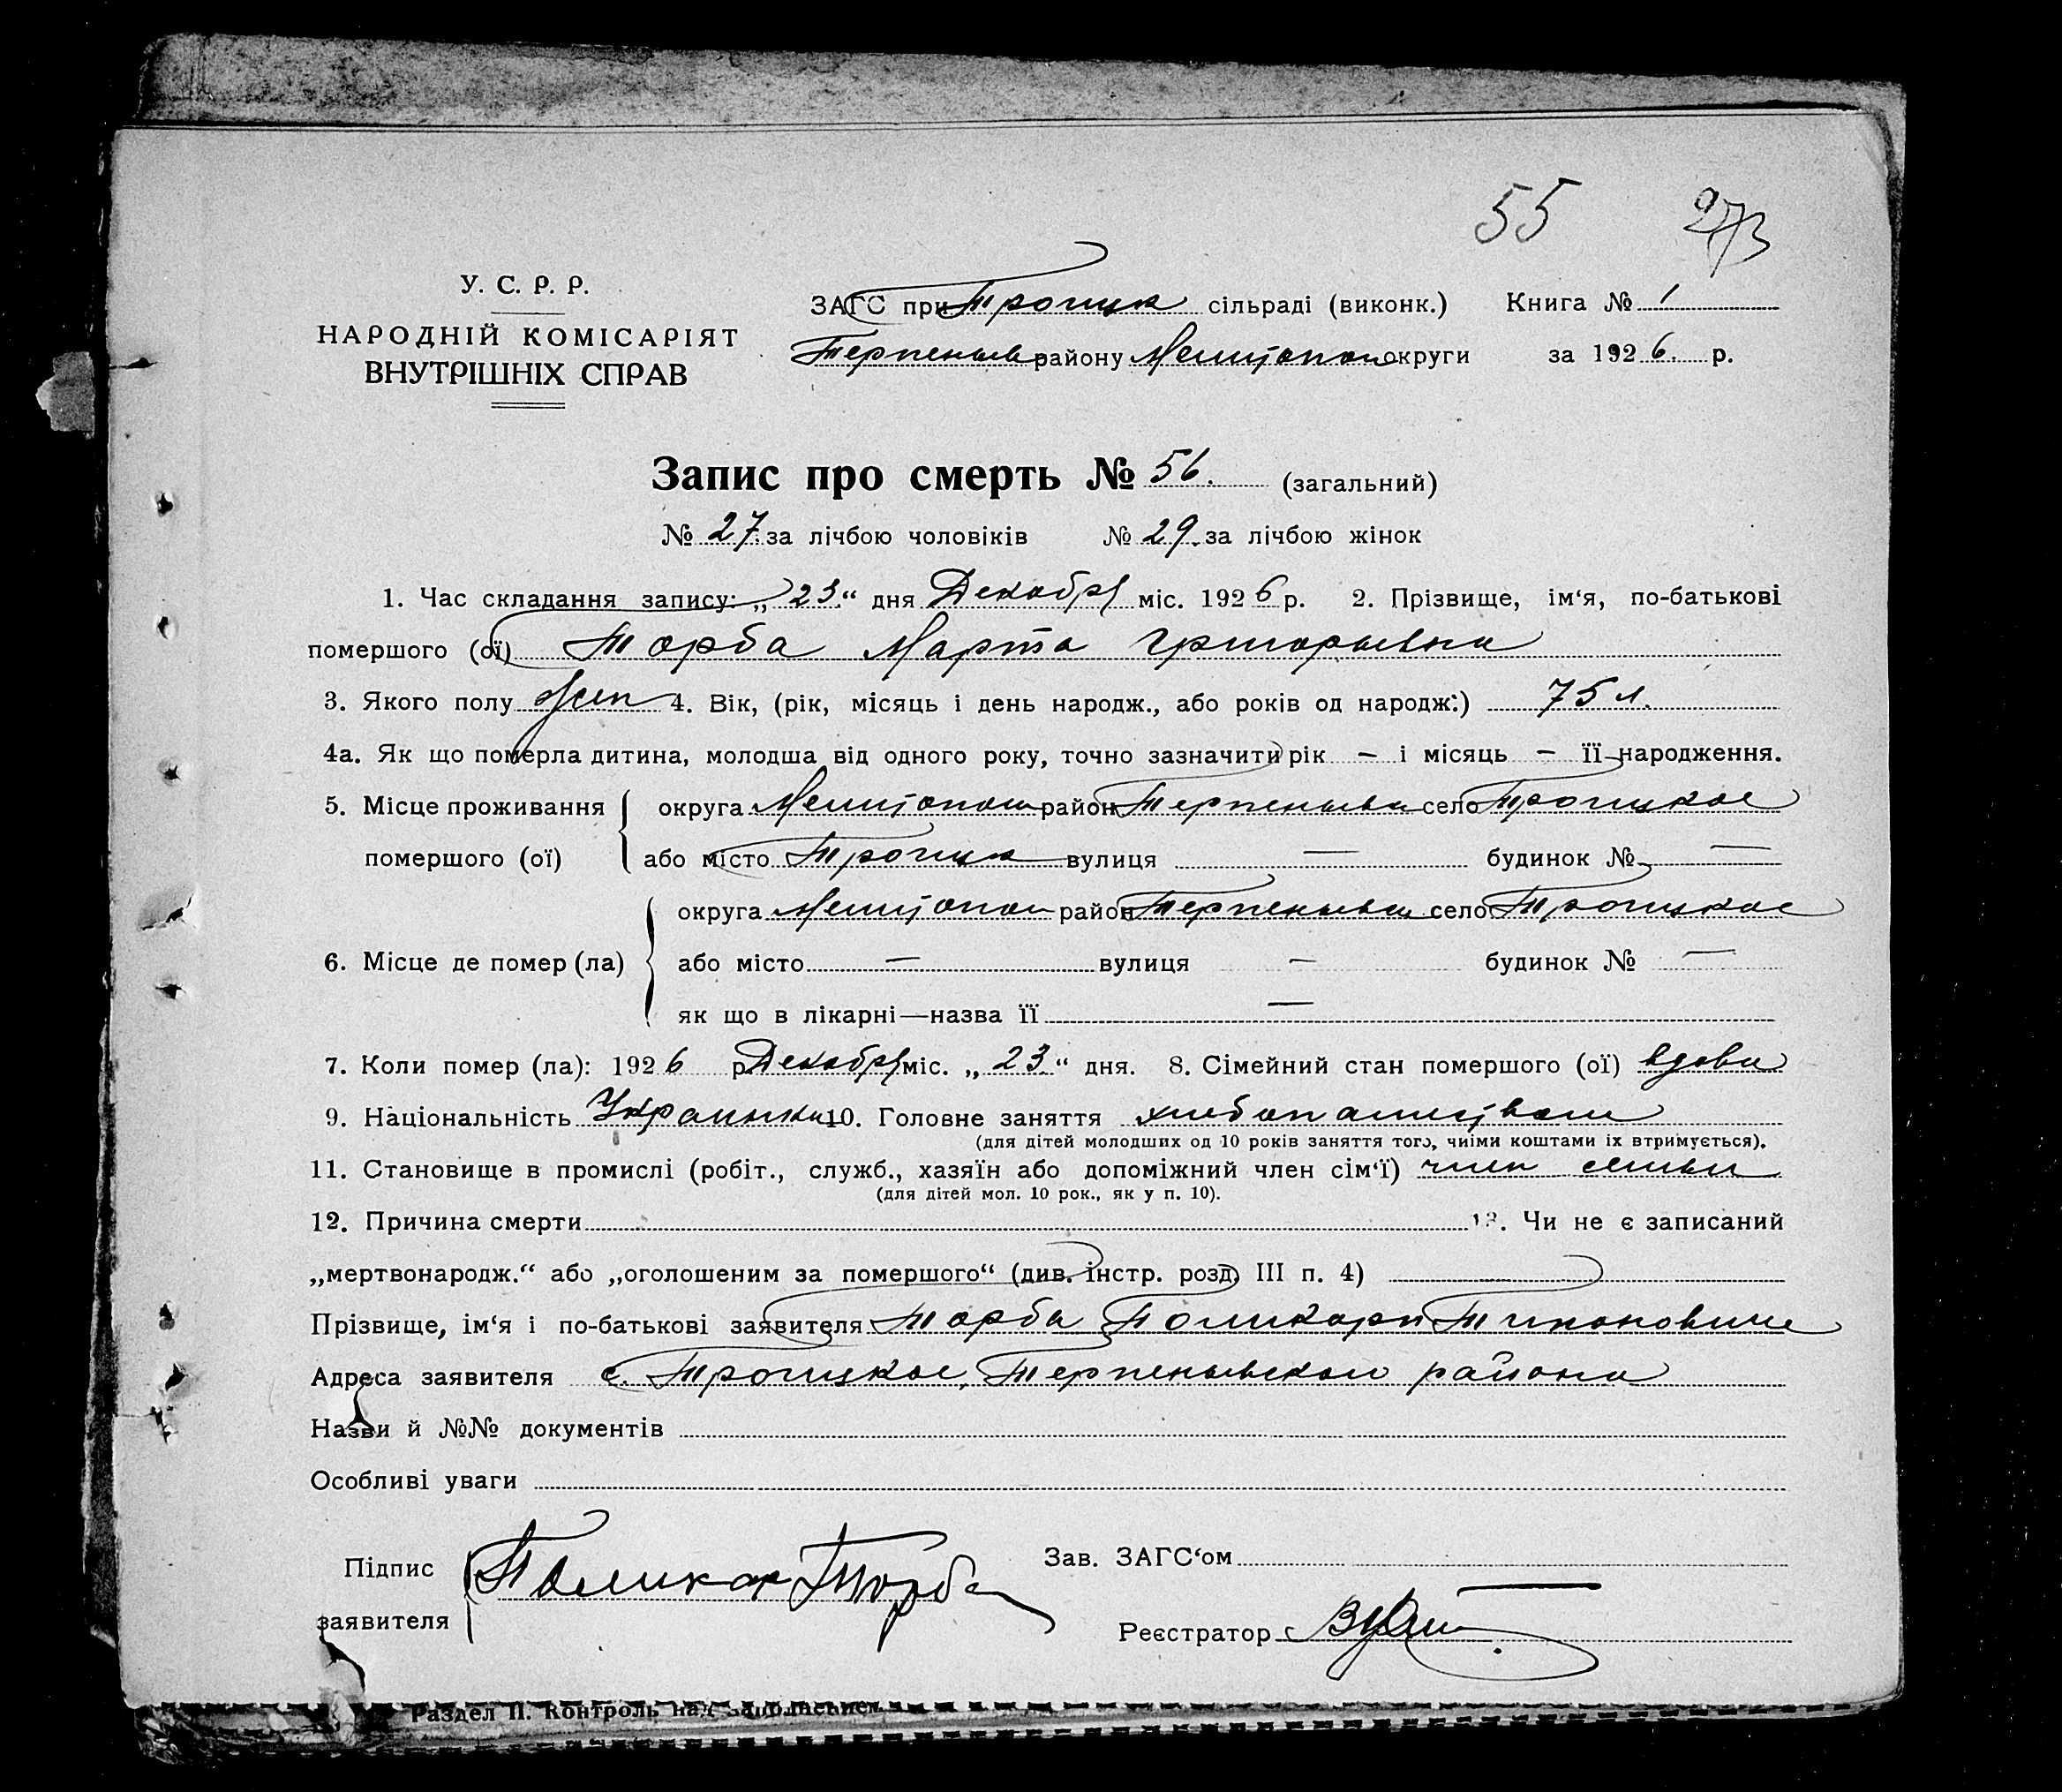 55 273
У. С. Р. Р.
НАРОДНІЙ КОМІСАРІЯТ
ВНУТРІШНІХ СПРАВ
ЗАГС при Троицк сільраді (виконк.) Книга № 1
Терпеньев району Мелитопол округи за 1926 р.
Запис про смерть № 56. (загальний)
№ 27. за лічбою чоловіків № 29. за лічбою жінок
1. Час складання запису: „23“ дня Декабря міс. 1926 р. 2. Прізвище, ім‘я, по-батькові
помершого (ої) Торба Марта Григорьевна
3. Якого полу жен 4. Вік, (рік, місяць і день народж., або років од народж.) 75 л.
4а. Як що померла дитина, молодша від одного року, точно зазначити рік – і місяць – її народження.
5. Місце проживання округа Мелитопол район Терпеньев село Троицкое
помершого (ої) або місто Троицк вулиця — будинок № —
округа Мелитопол район Терпеньев село Троицкое
6. Місце де помер (ла) або місто — вулиця — будинок № —
як що в лікарні—назва її —
7. Коли помер (ла): 1926 р. Декабря міс. „23“ дня. 8. Сімейний стан помершого (ої) вдова
9. Національність Украинка 10. Головне заняття хлебопашество
(для дітей молодших од 10 років заняття того, чиїми коштами їх втримується).
11. Становище в промислі (робіт., служб., хазяїн або допоміжний член сім‘ї) член семьи
(для дітей мол. 10 рок., як у п. 10).
12. Причина смерти 13. Чи не є записаний
„мертвонародж.“ або „оголошеним за помершого“ (див. інстр. розд. III п. 4)
Прізвище, ім‘я і по-батькові заявителя Торба Поликарп Тихонович
Адреса заявителя с. Троицкое, Терпеньевского района
Назви й №№ документів
Особливі уваги
Підпис Поликар Торба Зав. ЗАГС‘ом
заявителя Реєстратор
Раздел II. Контроль над заполнением